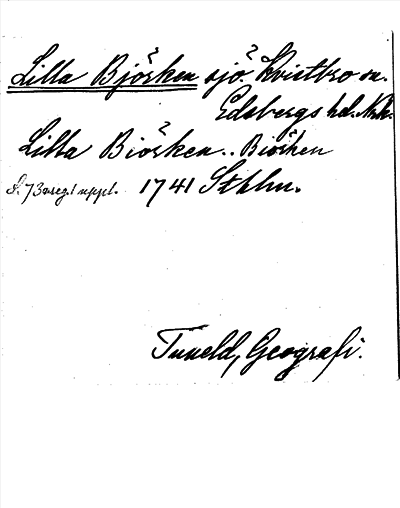 Lilla Björken sjö. Kvistbro sn.
Edsbergs hd. Nrk.
Lilla Biörken.. Biörken
S. 73 1741 Sthlm.
Tuneld, Geografi.